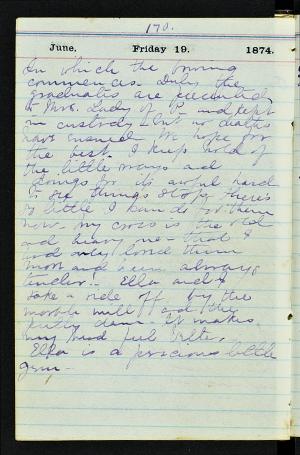 170.
June. Friday 19. 1874.
In which the
commences. Duly the
graduates are
& Mrs. Lady of V- and kept
in custody - but no deaths
have ensued. We hope for
the best. I keep hold of
the little ways and
for its awful hard
to see things slope theres
so little I can do for them
now. my cross is the old
and heavy one - that I
had only loved them
more and been always
tender. - Ella and I
take a ride off by the
marble mill and the
dam - It makes
my head feel better.
Ella is a precious little
gem -